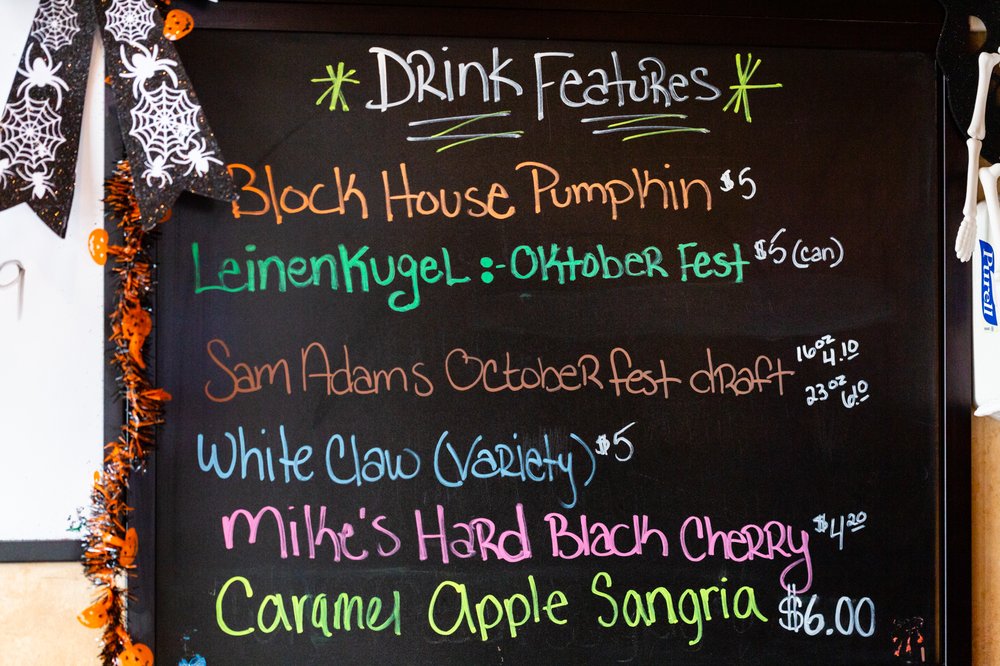 Drink Features
Block House Pumpkin $5
Leinenkugel :- Oktober Fest $5 (can)
Sam Adams October fest draft 16oz 4.10
23oz 6.10
White Claw (Variety) $5
Mike's Hard Black Cherry $4.20
Caramel Apple Sangria $6.00
Purell
9